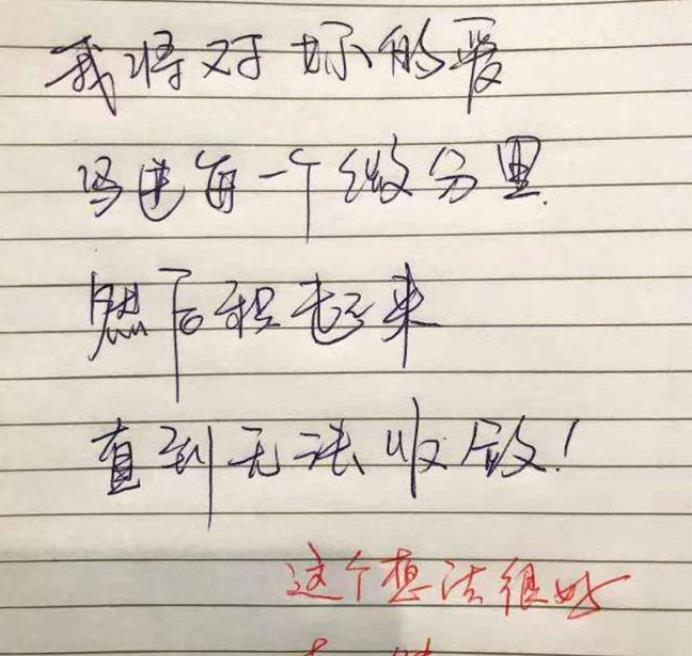 我将对你的爱
写进每一个微分里
然后积起来
直到无法收敛!
这个想法很好